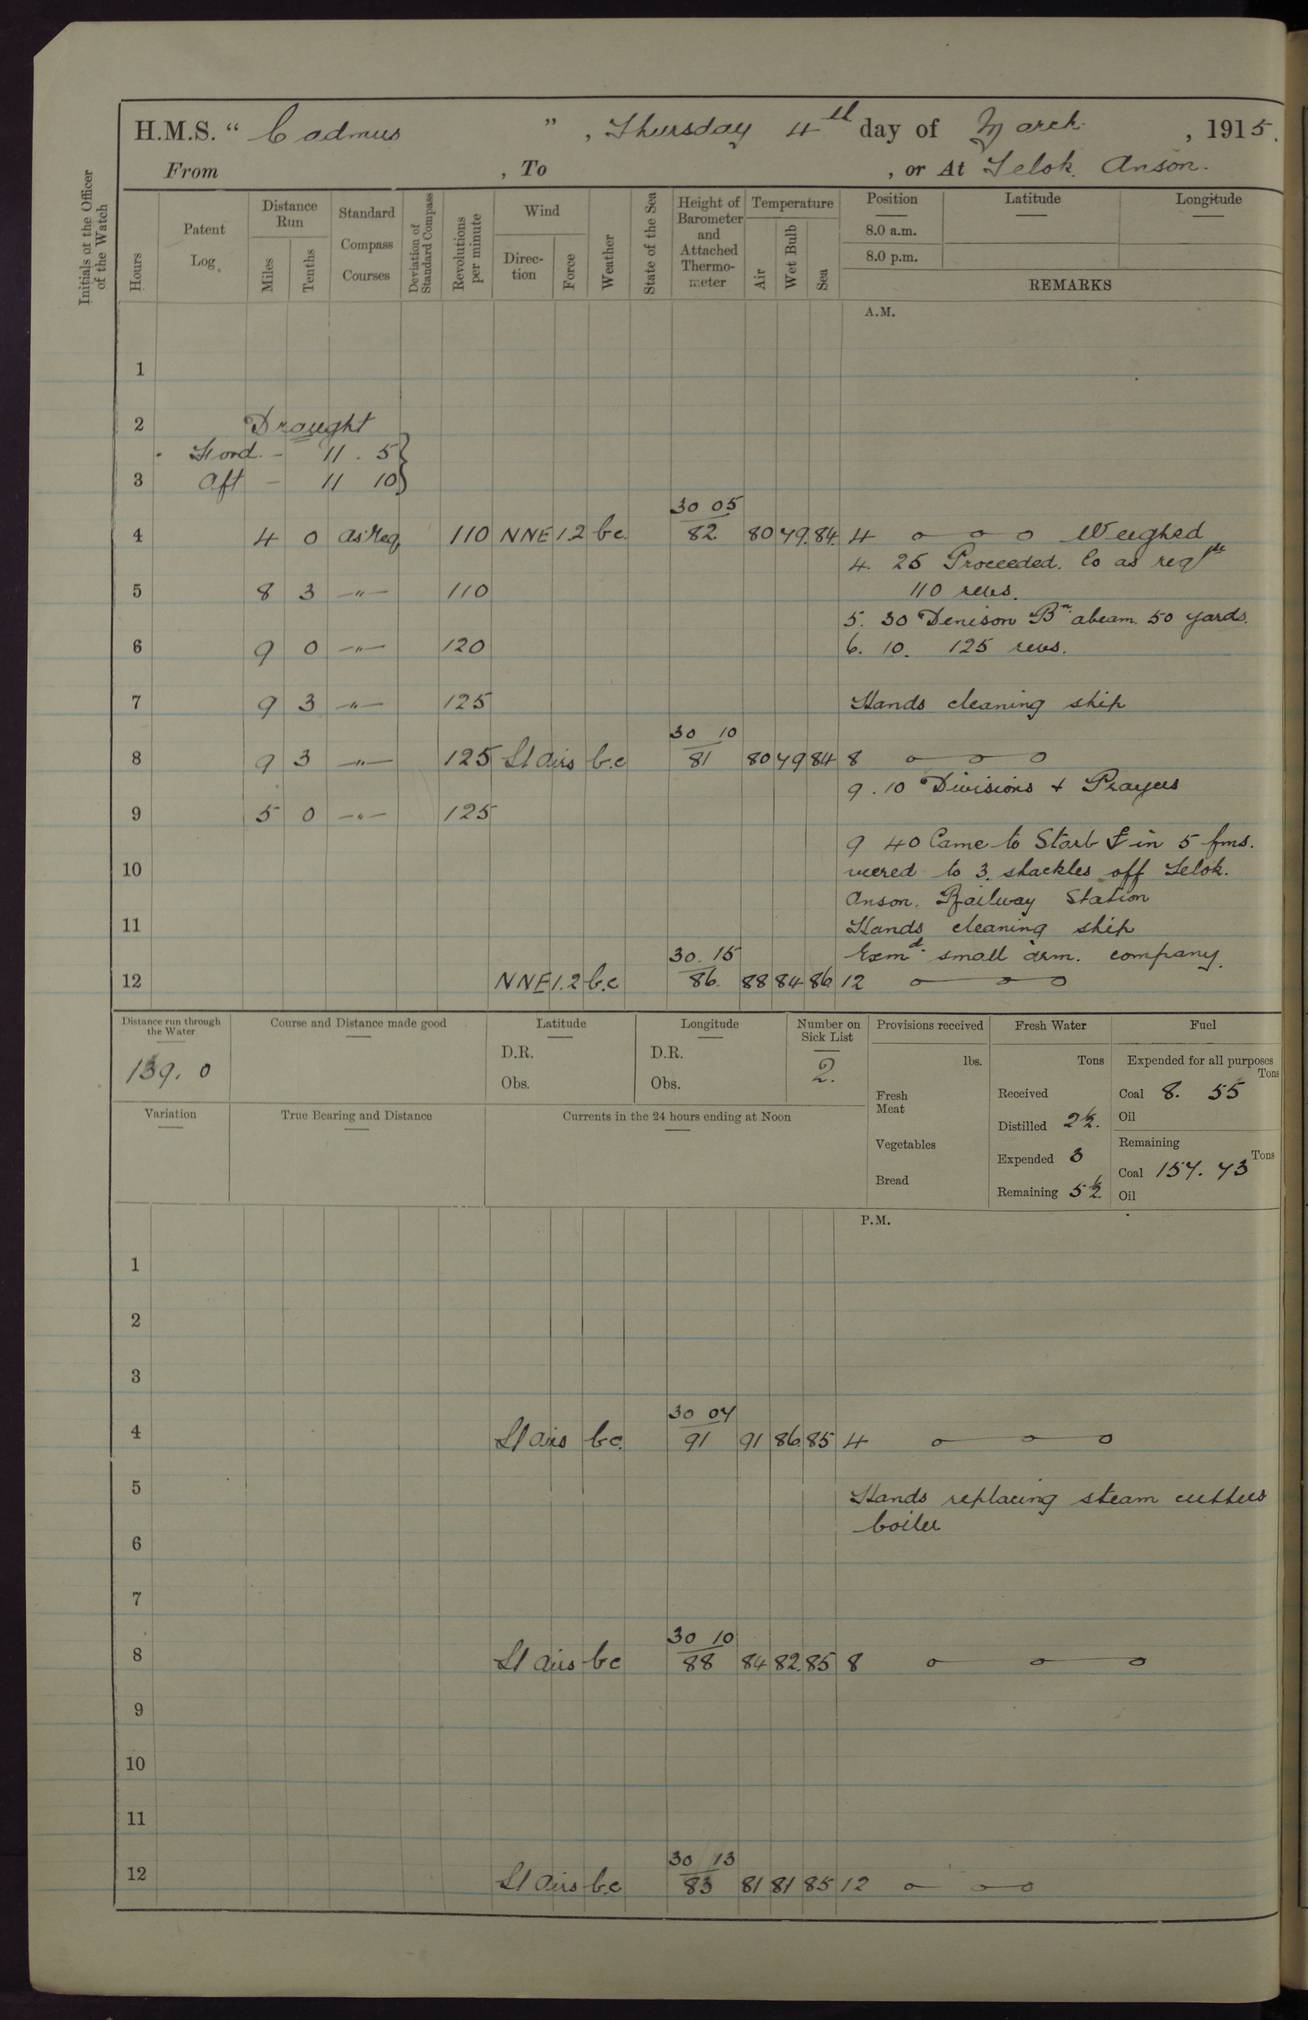 H.M.S. “ Cadmus ” , Thursday 4th day of March , 1915.
From , To , or At Telok Anson.
Initials of the Officer of the Watch
Hours
Patent Log
Distance Run
Miles
Tenths
Standard Compass Courses
Deviation of Standard Compass
Revolutions per minute
Wind
Direction
Force
Weather
State of the Sea
Height of Barometer and Attached Thermometer
Temperature
Air
Wet Bulb
Sea
Position Latitude Longitude
8.0 a.m.
8.0 p.m.
REMARKS
A.M.
1
2 Draught
Ford - 11 . 5 }
3 Aft - 11 10 }
30 05
4 4 0 as req 110 NNE 1.2 b.c. 82 80 79 84 4 Weighed
4. 25 Proceeded. Co as reqde
5 8 3 —"— 110 110 revs.
5. 30 Denison Bn abeam 50 yards.
6 9 0 —"— 120 6. 10. 125 revs.
7 9 3 —"— 125 Hands cleaning ship
30 10
8 9 3 —"— 125 Lt airs b.c 81 80 79 84 8
9.10 Divisions + Prayers
9 5 0 —"— 125
9 40 Came to Starb ⚓ in 5 fms.
10 veered to 3. shackles off Telok.
Anson. Railway Station
11 Hands cleaning ship
30. 15 Exmd small arm. company.
12 NNE 1.2 b.c 86 88 84 86 12
Distance run through the Water Course and Distance made good Latitude Longitude Number on Sick List Provisions received Fresh Water Fuel
139. 0 D.R. D.R. 2. lbs. Tons Expended for all purposes Tons
Obs. Obs. Fresh Meat Received Coal 8. 55
Variation True Bearing and Distance Currents in the 24 hours ending at Noon Distilled 2½. Oil
Vegetables Expended 3 Remaining Tons
Bread Remaining 5½ Coal 157. 73
Oil
P.M.
1
2
3
30 07
4 Lt airs b.c. 91 91 86 85 4
5 Hands replacing steam cutters
boiler
6
7
30 10
8 Lt airs b.c 88 84 82 85 8
9
10
11
30 13
12 Lt airs b.c 83 81 81 85 12